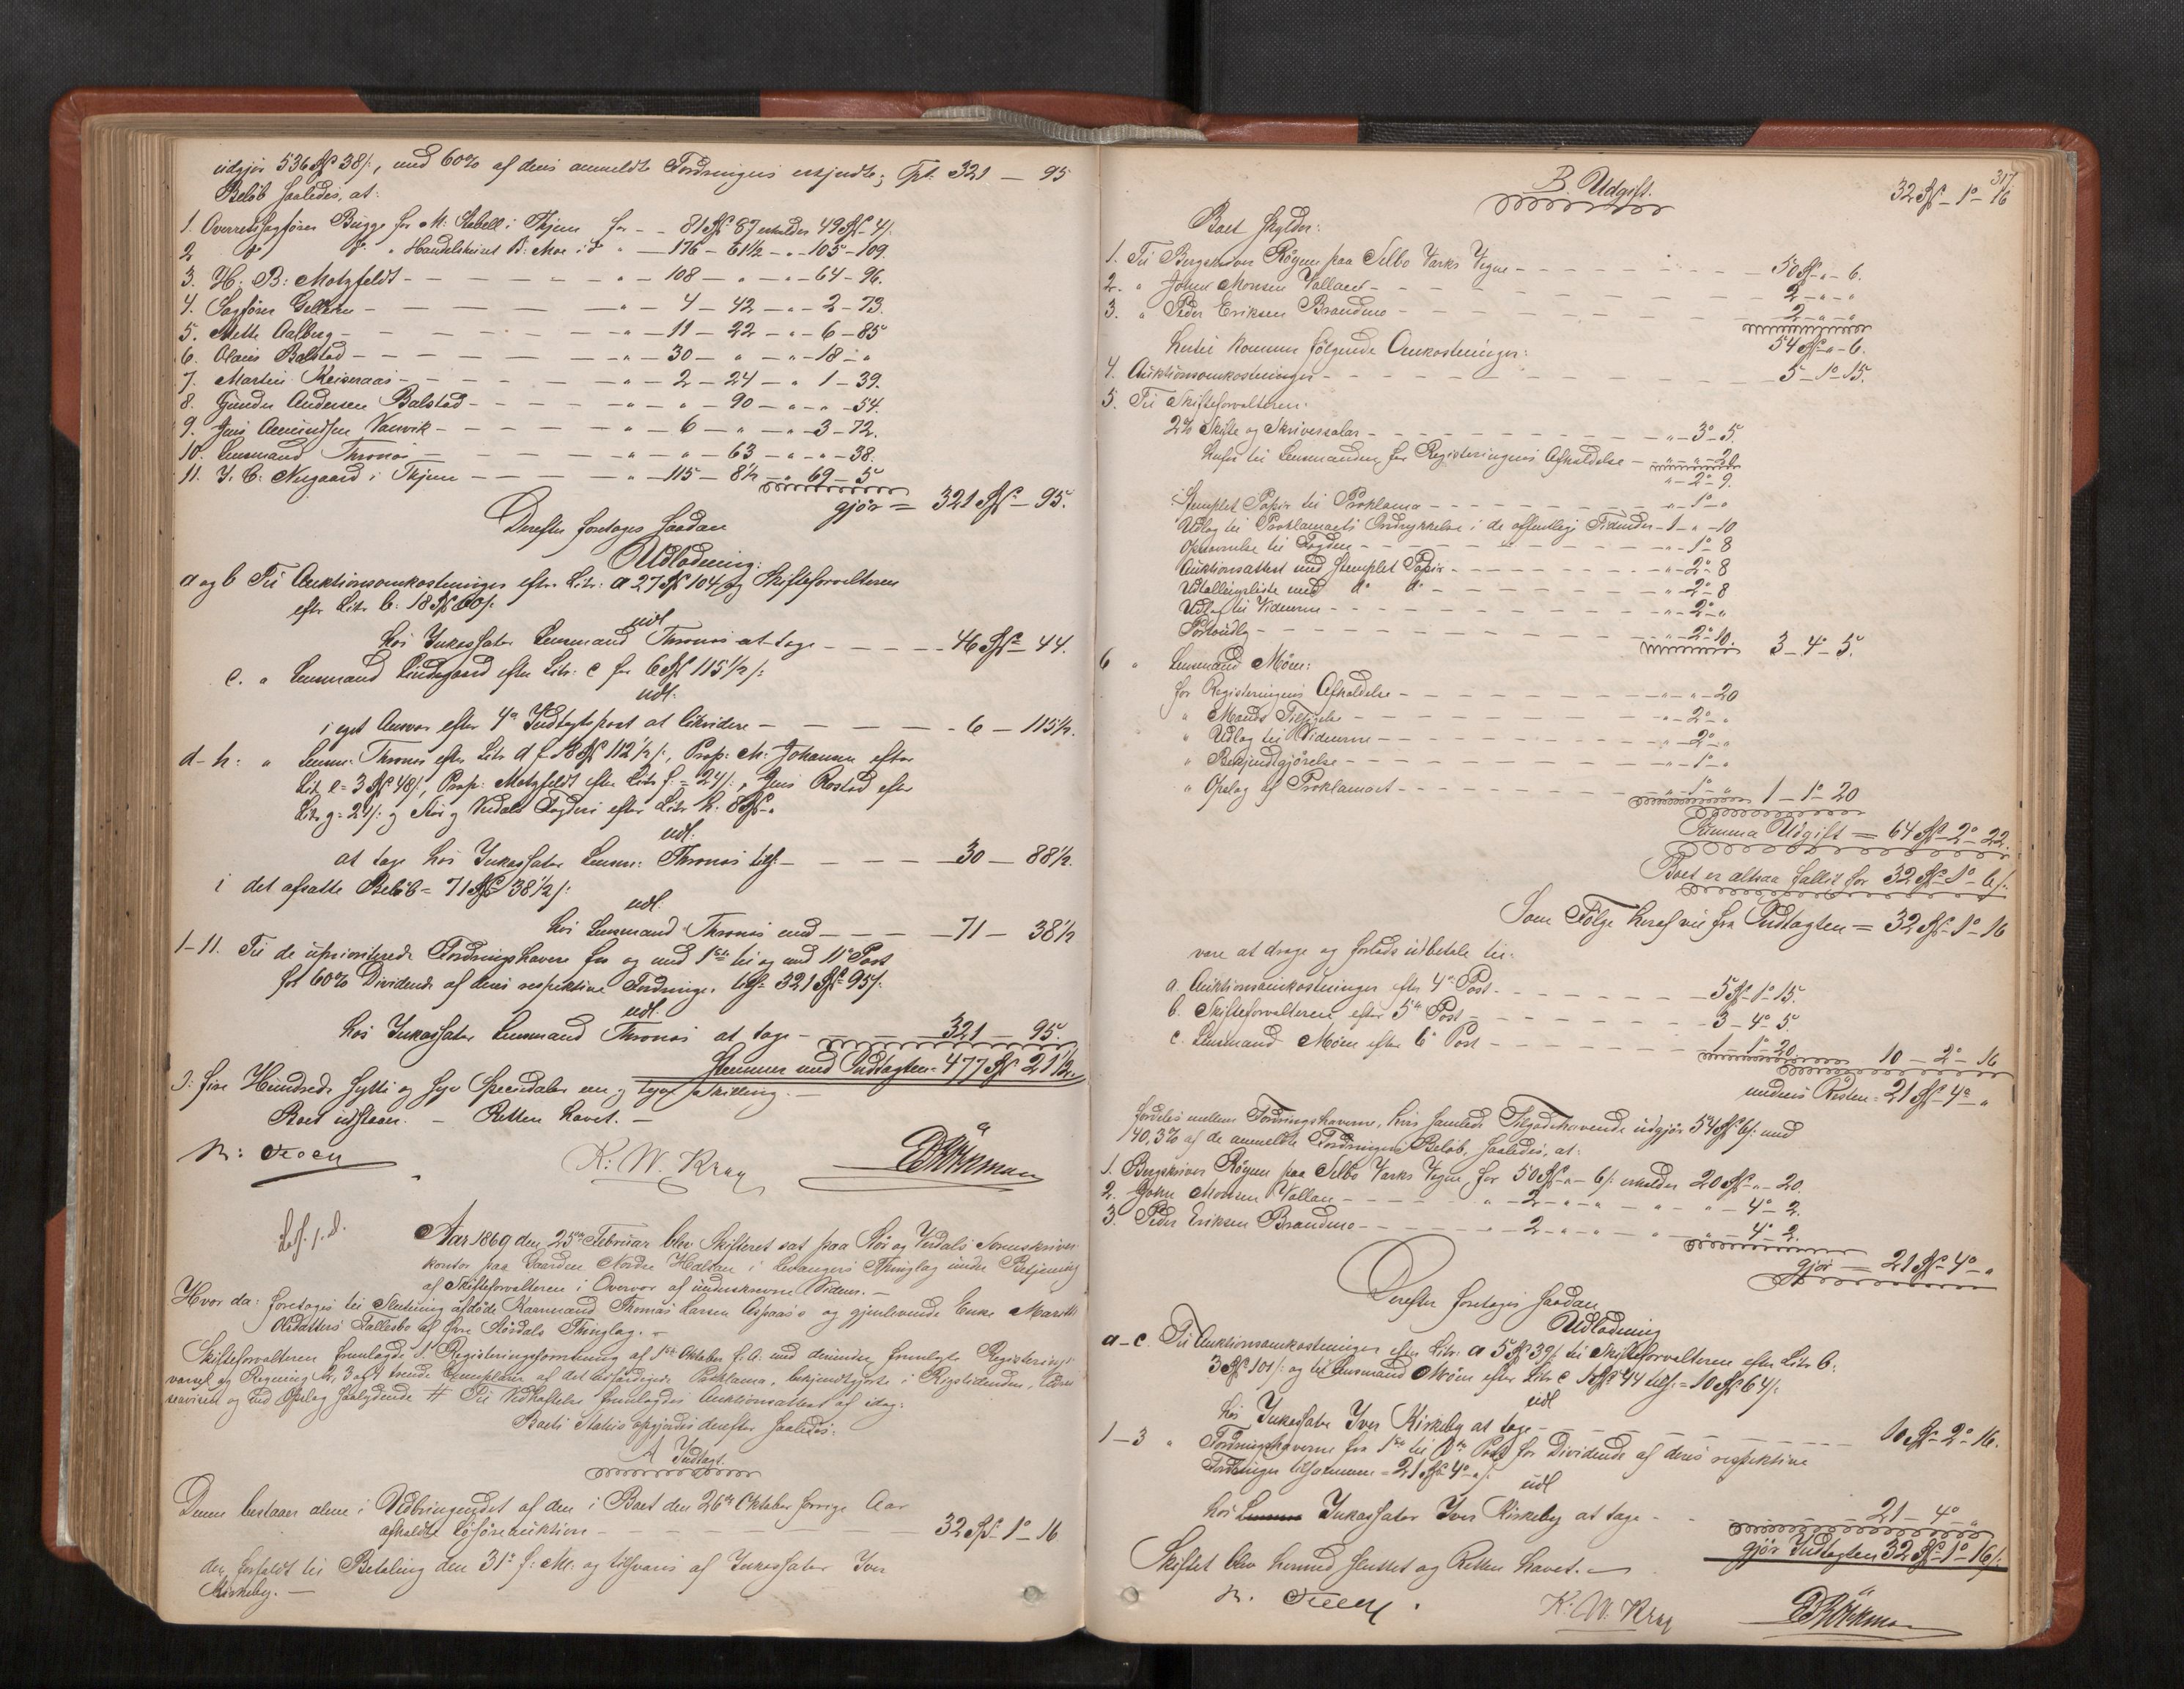 udgjør 536 Spd 38 /:, med 60% af deres anmeldte Fordringers erkjendte; Tpt. 321 — 95
Beløb saaledes, at:
1. Overretssagfører Bugge for M. Stabell i Thjem for - - 81 Spd 87 erholder 49 Spd - 4 /:
2 do do " Handelshuset B: Moe i do " — 176 — 61½ - " - 105 - 109.
3. H. B: Motzfeldt - — — - " - 108 — " - " - 64 - 96.
4. Sagfører Gellein - — — — - " - 4 - 42 - " - 2 - 73.
5. Mette Aalberg - — — — - " - 11 - 22 - " - 6 - 85
6. Olaus Balstad - — — — - " - 30 - " - " - 18 - "
7. Martin Reiseraas - — — — - " - 2 - 24 - " 1 - 39.
8. Gunder Andersen Balstad - - — — - " - " - 90 - " - " - 54.
9. Jens Amundsen Vanvik - — — - " - 6 - " - " - 3 - 72.
10. Lensmand Thronæs — — — - " - " - 63 - " - " - 38.
11. J. C. Nygaard i Thjem - — — - " - 115 - 8½ - " 69 - 5
gjør = 321 Spd - 95.
Derefter foretoges saadan
Udlodning:
a og b Til Auktionsomkostninger efter Litr: a 27 Spd 104 og Skifteforvalteren
efter Litr b: 18 Spd 60 /:
udl
hos Inkassator Lensmand Thronæs at tage - - - - - 46 Spd - 44.
c. " Lensmand Lindegaard efter Litr: c for 6 Spd 115½ /:
udl.
i eget Ansvar efter 4de Indtægtspost at likvidere - — — - 6 — 115½.
d-h: " Lensm: Thronæs efter Litr d f 18 Spd 112½ /:, Prop: M. Johansen efter
Litr e = 3 Spd 48 /:, Prop: Motzfeldt efter Litr f. = 24 /:, Jens Rostad efter
Litr g = 24 /: og Stør og Verdals Fogderi efter Litr h. 8 Spd - "
udl.
at tage hos Inkassator Lensm: Thronæs tils: - — — 30 — 88½.
i det afsatte Beløb = 71 Spd 38½ /:
udl.
hos Lensmand Thronæs med - — — — 71 — 38½
1-11. Til de uprioriterede Fordringshavere fra og med 1ste til og med 11te Post
for 60% Dividende af deres respektive Fordringer tils: 321 Spd 95 /:
udl.
hos Inkassator Lensmand Thronæs at tage - — — 321 — 95.
Stemmer med Indtægten = 477 Spd 21½.
ɔ: fire Hundrede sytti og syv Speciedaler en og tyve Skilling. —
Boet udstaaer. — Retten hævet. —
K. W. Krag
Aar 1869 den 25de Februar blev Skifteret sat paa Stør og Verdals Sorenskriver-
kontor paa Gaarden Nordre Halsan i Levangers Thinglag under Betjening
af Skifteforvalteren i Overvær af underskrevne Vidner. —
Hvor da: foretoges til Slutning afdøde Kaarmand Thomas Larsen Aspaas's og gjenlevende Enke Marith
Olsdatters Fællesbo af Øvre Stjørdals Thinglag. —
Skifteforvalteren fremlagde 1. Registreringsforretning af 1ste Oktober f. A. med derunder fremlagte Registrerings-
varsel og Regning 2, 3 og 4 trende Exemplarer af det udfærdigede Proklama, bekjendtgjorte i Rigstidenden,
avisen og ved Opslag saalydende # Til Vedhæftelse fremlagdes Auktionsattest af idag.
Boets Status opgjordes derefter saaledes:
A Indtægt.
Denne bestaaer alene i Udbringendet af den i Boet den 26de Oktober forrige Aar
afholdte Løsøreauktion - — — — 32 Spd - 1 o 16
der forfaldt til Betaling den 31te f: M: og tilsvares af Inkassator Iver
Kirkeby. —
317
B. Udgift. 32 Spd - 1 o - 16
Boet skylder:
1. Til Bergskriver Røyem paa Selbo Værks Vegne - - - - 50 Spd - " - 6.
2. " John Monsen Vollan - - - - 2 - " - "
3. " Peder Eriksen Brandmo - - - - 2 - " - "
54 Spd - " - 6.
Hertil kommer følgende Omkostninger:
4. Auktionsomkostninger - - - - 5 - 1 o 15.
5. Til Skifteforvalteren:
2% Skifte og Skriversalær - - - - " - 3 o - 5.
herfra til Lensmanden for Registreringens Afholdelse - " - " - 20
" - 2 o - 9.
Stemplet Papir til Proklama - - - - " - 1 o - "
Udlæg til Proklamaets Indrykkelse i de offentlige Tidender - 1 - " - 10
Opkrævelse til Fogden - - - - " - 1 o 8
Auktionsattest med stemplet Papir - - - - " - 2 o - 8
Udtællingsliste med do do - - - - " - 2 o - 8
Udlæg til Vidnerne - - - - " - 2 o - "
Portoudlæg - - - - " - 2 o 10. 3 - 4 o - 5.
6 " Lensmand Møen:
for Registreringens Afholdelse - - - - " - " - 20
" Mands Tilsigelse - - - - " - 2 o - "
" Udlæg til Vidnerne - - - - " - 2 o - "
" Bekjendtgjørelse - - - - " - 1 o - "
" Opslag af Proklamaet - - - - " - 1 o - " 1 - 1 o 20
Summa Udgift = 64 Spd - 2 o - 22.
Boet er altsaa fallit for 32 Spd - 1 o - 6 /:
Som Følge heraf vil fra Indtægten = 32 Spd - 1 o - 16
være at drage og forlods udbetale til:
a. Auktionsomkostninger efter 4de Post - - - - 5 Spd - 1 o 15.
b. Skifteforvalteren efter 5te Post - - - - 3 - 4 o 5.
c. Lensmand Møen efter 6te Post - - - - 1 - 1 o 20 10 - 2 o - 16
medens Resten = 21 Spd - 4 o - "
fordeles mellem Fordringshaverne, hvis samlede Tilgodehavende udgjør 54 Spd 6 /: med
40,3% af de anmeldte Fordringers Beløb, saaledes, at:
1. Bergskriver Røyem paa Selbo Værks Vegne, for 50 Spd - " - 6 /: erholder 20 Spd - " - 20.
2. John Monsen Vollan - - - - " - 2 - " - " - " - " - 4 o - 2.
3. Peder Eriksen Brandmo - - - - " - 2 - " - " - " - " - 4 o 2.
gjør = 21 Spd - 4 o - "
Derefter foretoges saadan
Udlodning
a-c. Til Auktionsomkostninger efter Litr: a 5 Spd 39 /: til Skifteforvalteren efter Litr b:
3 Spd 101 /: og til Lensmand Møen efter Litr c 1 Spd 44 tils: = 10 Spd 64 /:
udl
hos Inkassator Iver Kirkeby at tage - - - - 10 Spd - 2 o - 16.
1-3 " Fordringshaverne fra 1ste til 3die Post for Dividende af deres respektive
Fordringer tilsammen = 21 Spd 4 o - " /:
udl
hos Inkassator Iver Kirkeby at tage - - 21 - 4 o "
gjør Indtægten 32 Spd - 1 o - 16 /:
Skiftet blev hermed sluttet og Retten hævet. —
K. W. Krag